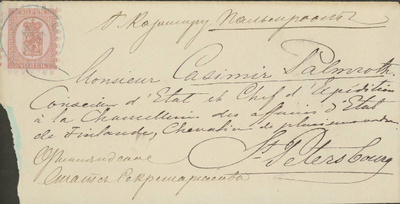 г. Казимиру Пальмроотъ
Monsieur Casimir Palmroth.
Conseiller d'Etat et Chef d'Expédition
à la Chancellerie des affaires d'Etat
de Finlande, Chevalier de plusieurs ordres
St Petersbourg
Финляндскаго
Статсъ Секретариата